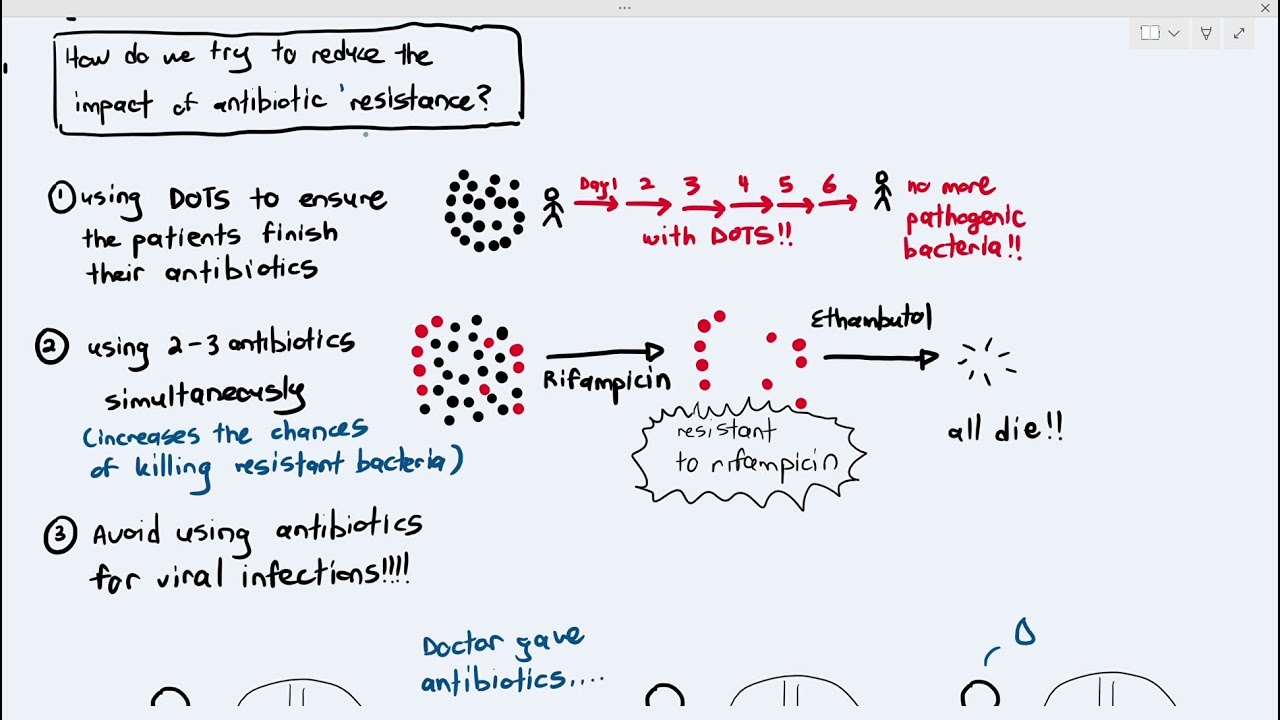 How do we try to reduce the
impact of antibiotic resistance?
① using DOTS to ensure
the patients finish
their antibiotics
Day 1 2 3 4 5 6
with DOTS!!
no more
pathogenic
bacteria!!
② using 2-3 antibiotics
simultaneously
(increases the chances
of killing resistant bacteria)
Rifampicin
resistant
to rifampicin
Ethambutol
all die!!
③ Avoid using antibiotics
for viral infections!!!!
Doctor gave
antibiotics....